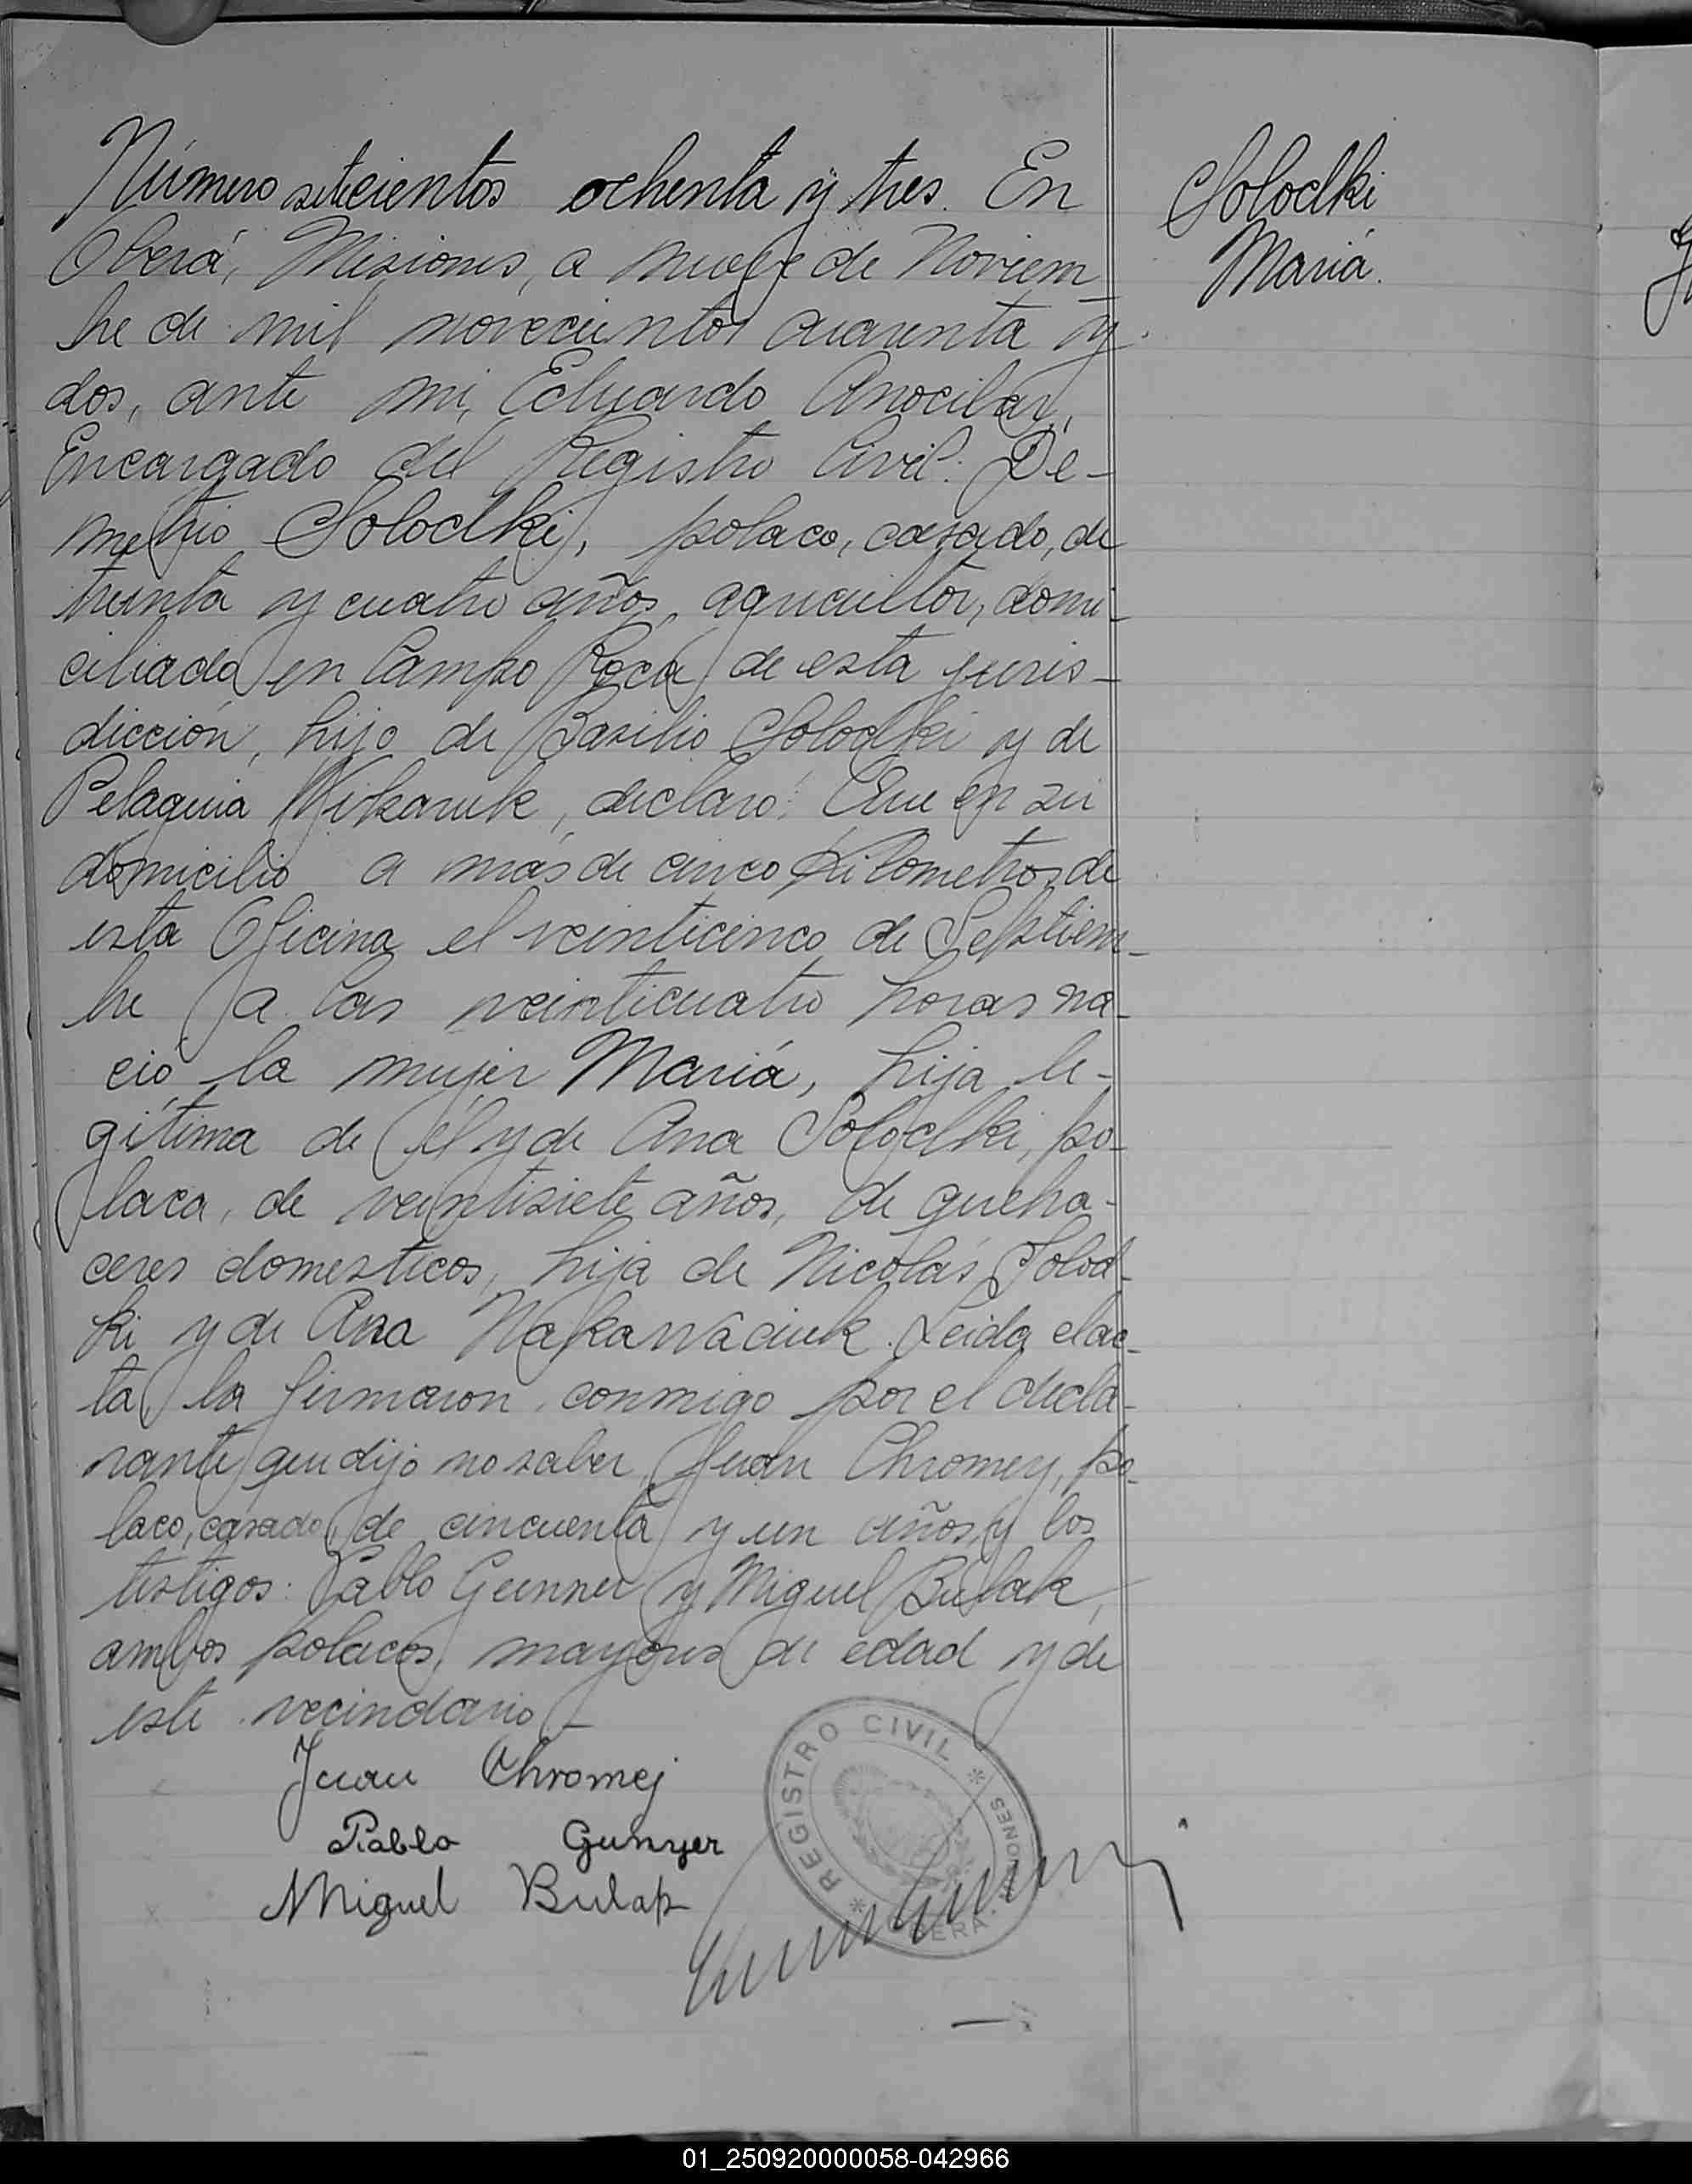 Número setecientos ochenta y tres. En
Oberá, Misiones, a nueve de Noviem_
bre de mil novecientos cuarenta y
dos, ante mi, Eduardo Anocibar,
Encargado del Registro Civil. De-
metrio Solodki, polaco, casado, de
treinta y cuatro años, agricultor, domi-
ciliado en Campo Roca de esta juris-
dicción, hijo de Basilio Solodki y de
Pelaguia, declaro: Que en su
domicilio a más de cinco kilometros de
esta Oficina el veinticinco de Septiem-
bre a las veinticuatro horas na-
ció la mujer Mariá, hija le-
gítima de él y de Ana Solodki, po-
laca, de veintisiete años, de queha-
ceres domesticos, hija de Nicolás Solod-
ki y de Ana. Leida el ac-
ta la firmaron conmigo por el decla-
rante que dijo no saber, Juan Chromey, po-
laco, casado, de cincuenta y un años, y los
testigos: Pablo Gunner y Miguel Bulak,
ambos polacos, mayores de edad y de
este vecindario.-
Juan Chromej
Pablo Gunyer
Miguel Bulak
REGISTRO CIVIL * OBERA. MISIONES *
Solodki
Mariá.
01_250920000058-042966